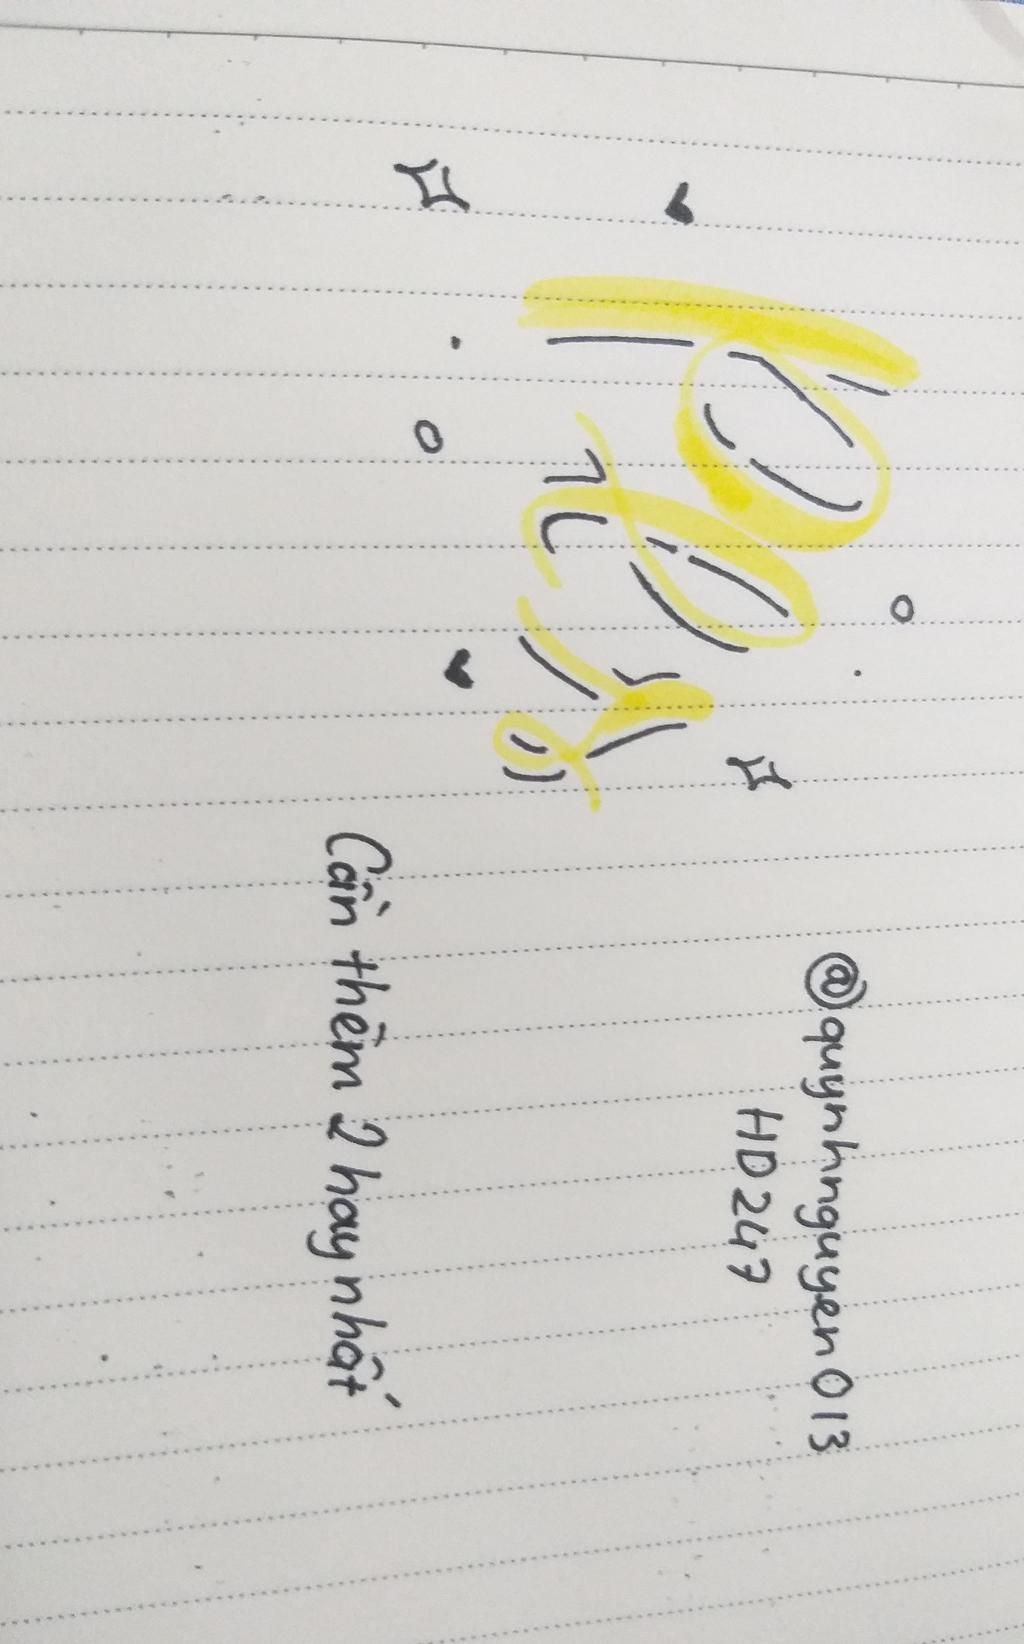 Pls
@quynhnguyen013
HD247
Cần thêm 2 hay nhất